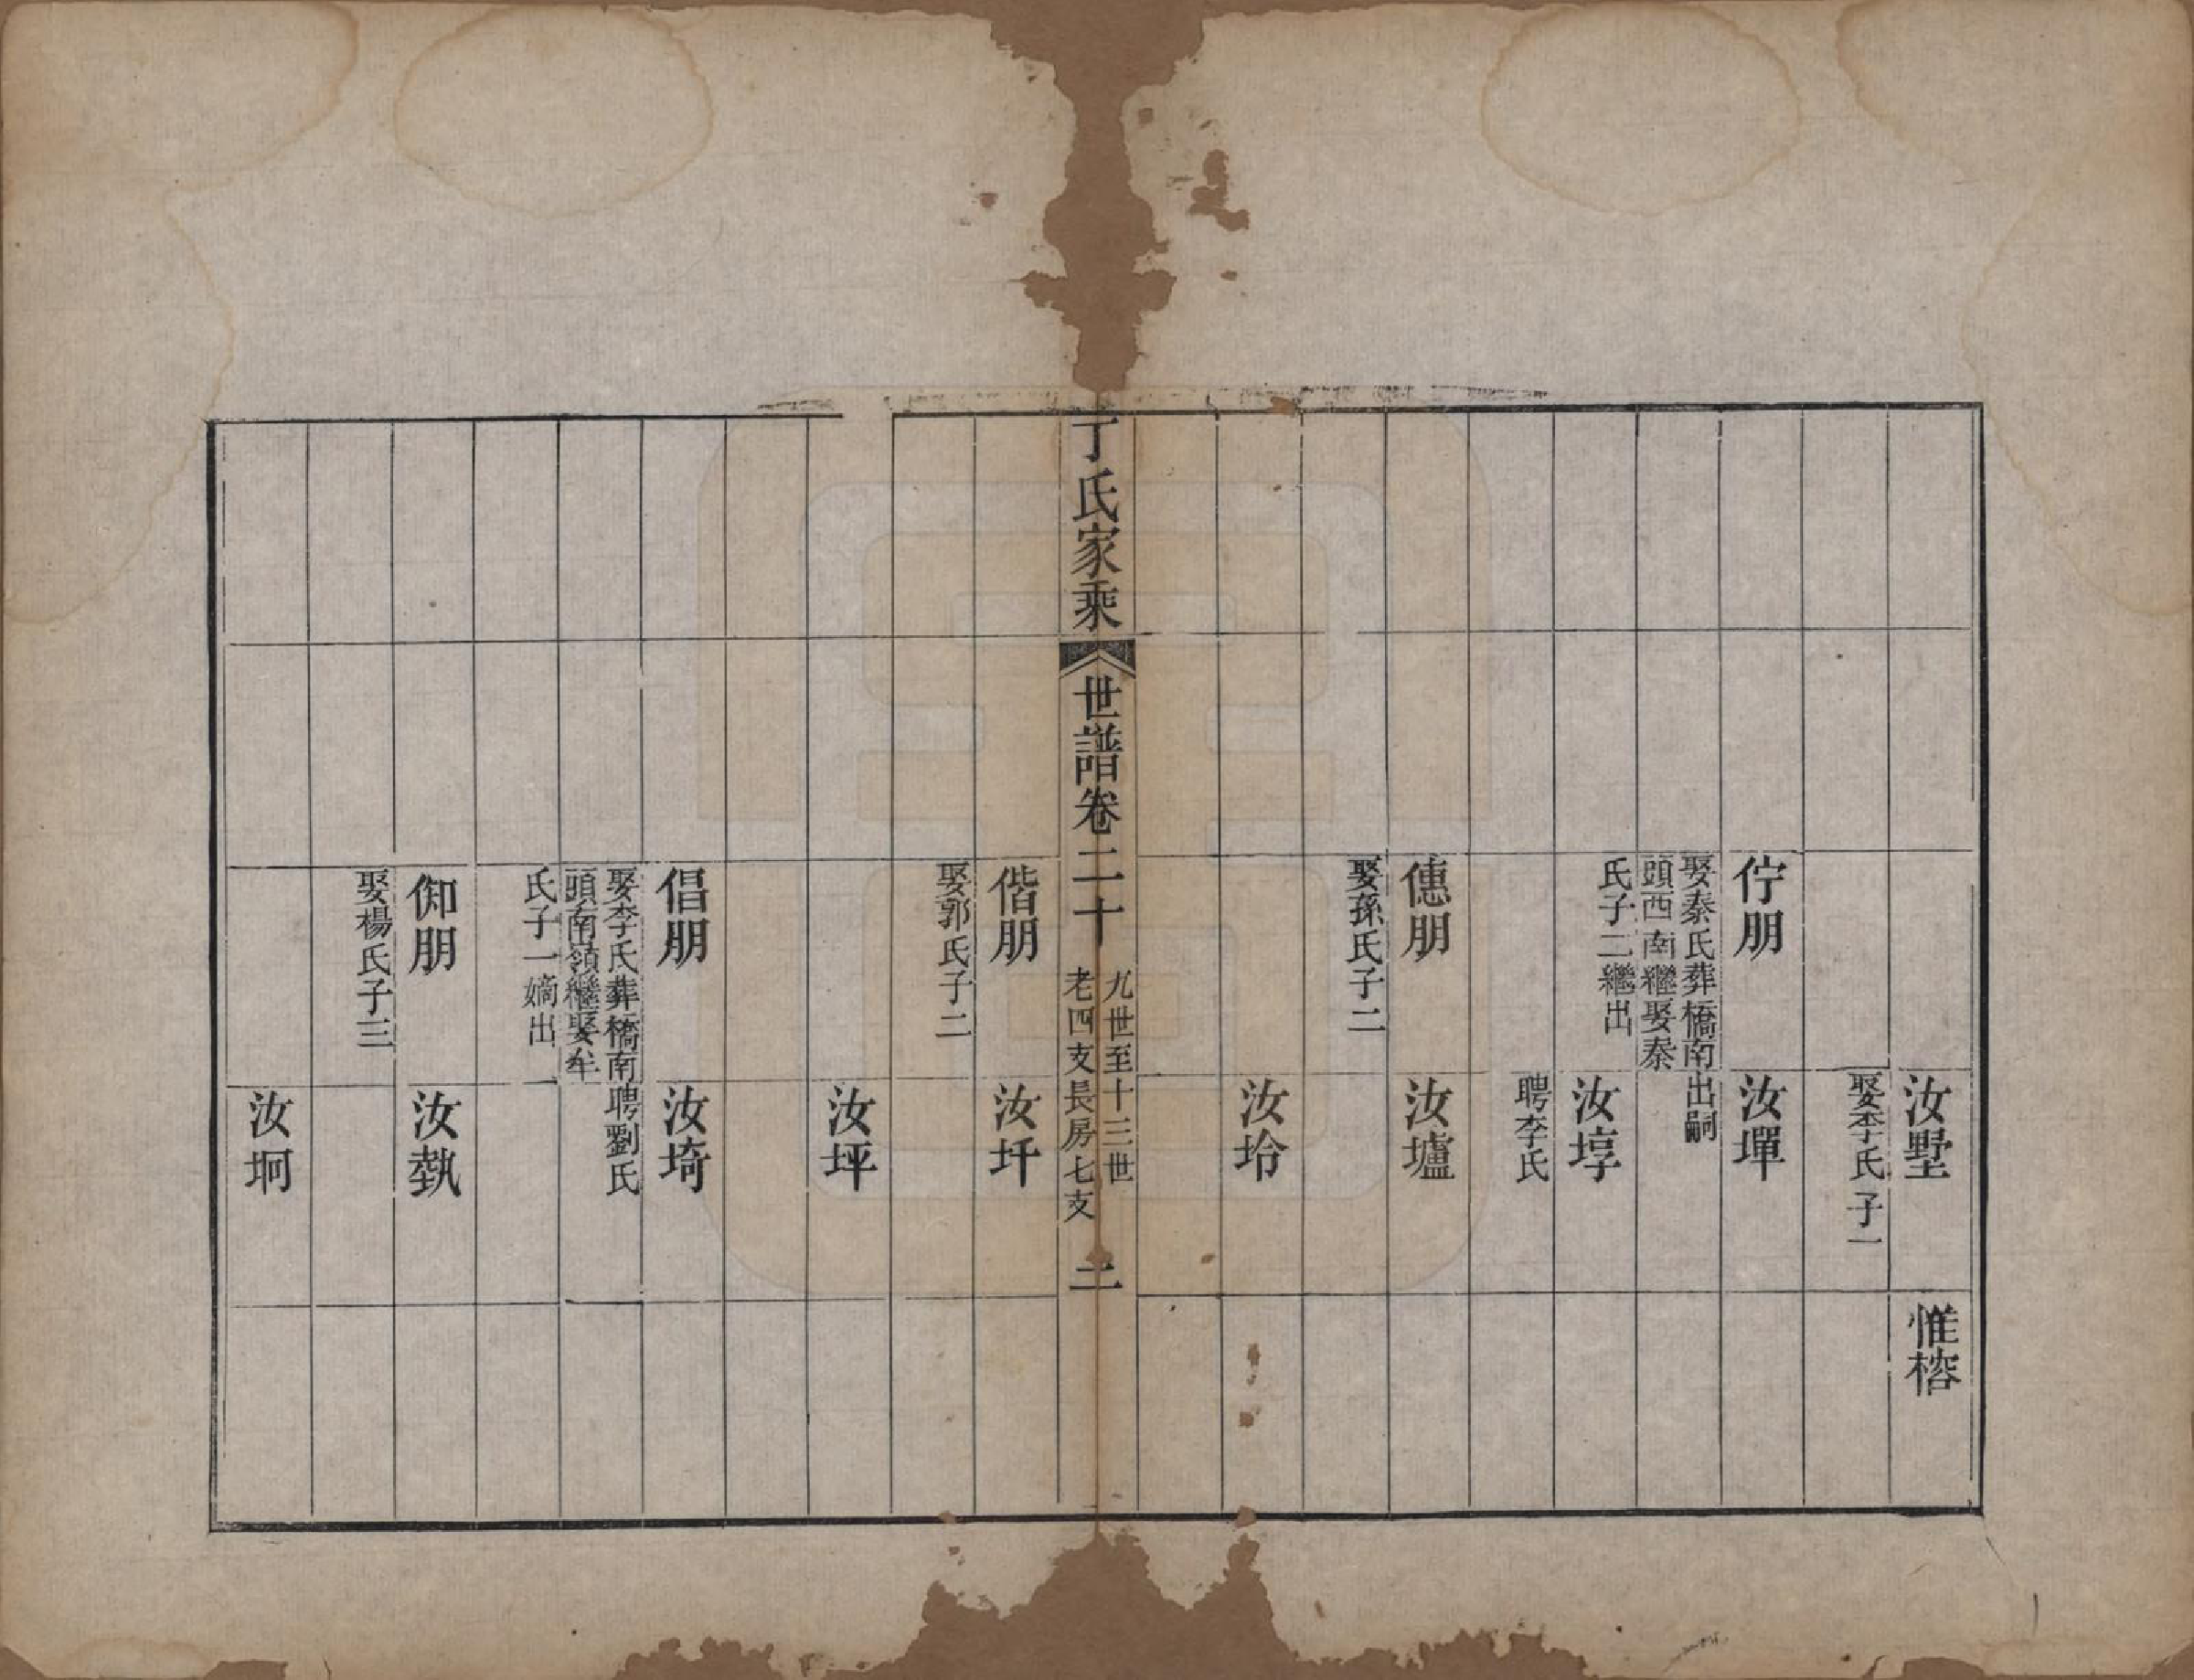 汝墅
娶李氏子一
惟榕
佇朋
娶秦氏葬橋南
頭西南繼娶秦
氏子二繼出
汝墠
出嗣
汝埻
聘李氏
僡朋
娶孫氏子二
汝壚
汝坽
丁氏家乘
世譜卷二十
九世至十三世
老四支長房七支
二
偕朋
娶郭氏子二
汝圲
汝坪
倡朋
娶李氏葬橋南
頭南嶺繼娶牟
氏子一嫡出
汝埼
聘劉氏
𠊝朋
娶楊氏子三
汝𡎺
汝坰